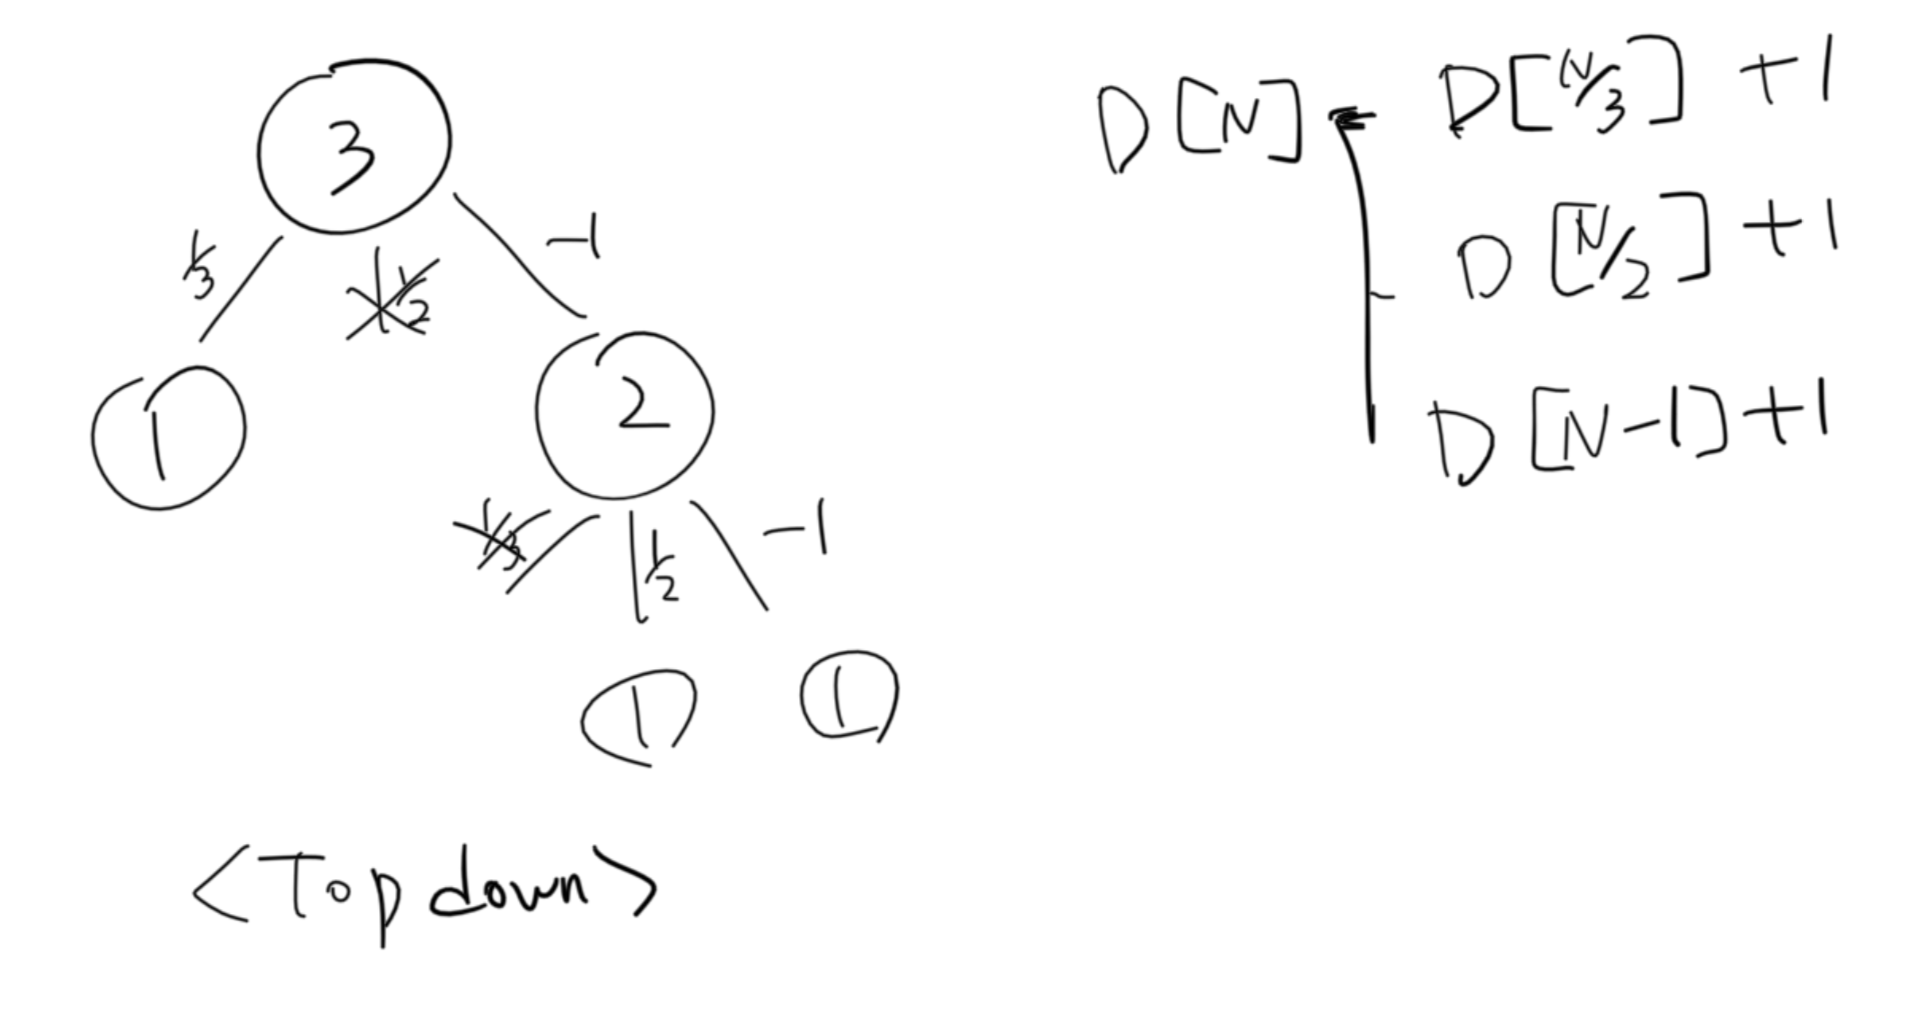 3
1/3
1/2
-1
1
2
1/3
1/2
-1
1
1
<Top down>
D[N]
D[N/3] +1
D[N/2] +1
D[N-1] +1